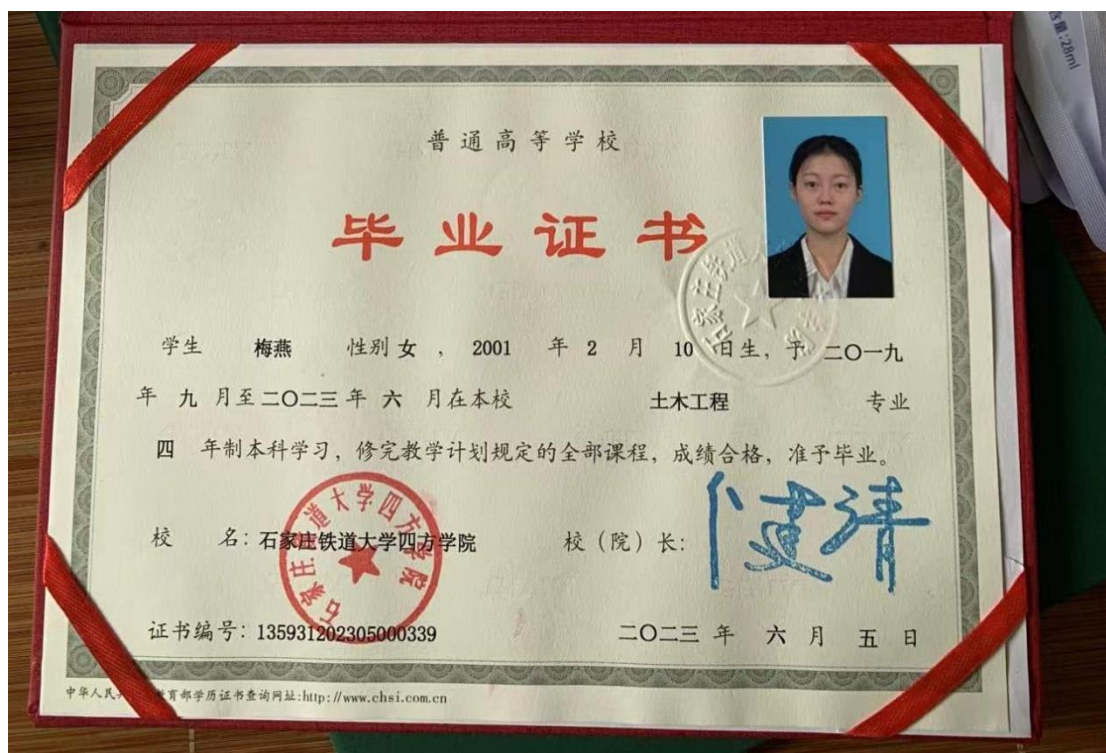 含量:28ml
普通高等学校
毕业证书
学生 梅燕 性别 女 ， 2001 年 2 月 10 日生，于 二〇一九
年 九 月至 二〇二三 年 六 月在本校 土木工程 专业
四 年制本科学习，修完教学计划规定的全部课程，成绩合格，准予毕业。
校 名：石家庄铁道大学四方学院 校（院）长：
石家庄铁道大学四方学院
证书编号：135931202305000339 二〇二三 年 六 月 五 日
中华人民 育部学历证书查询网址:http://www.chsi.com.cn